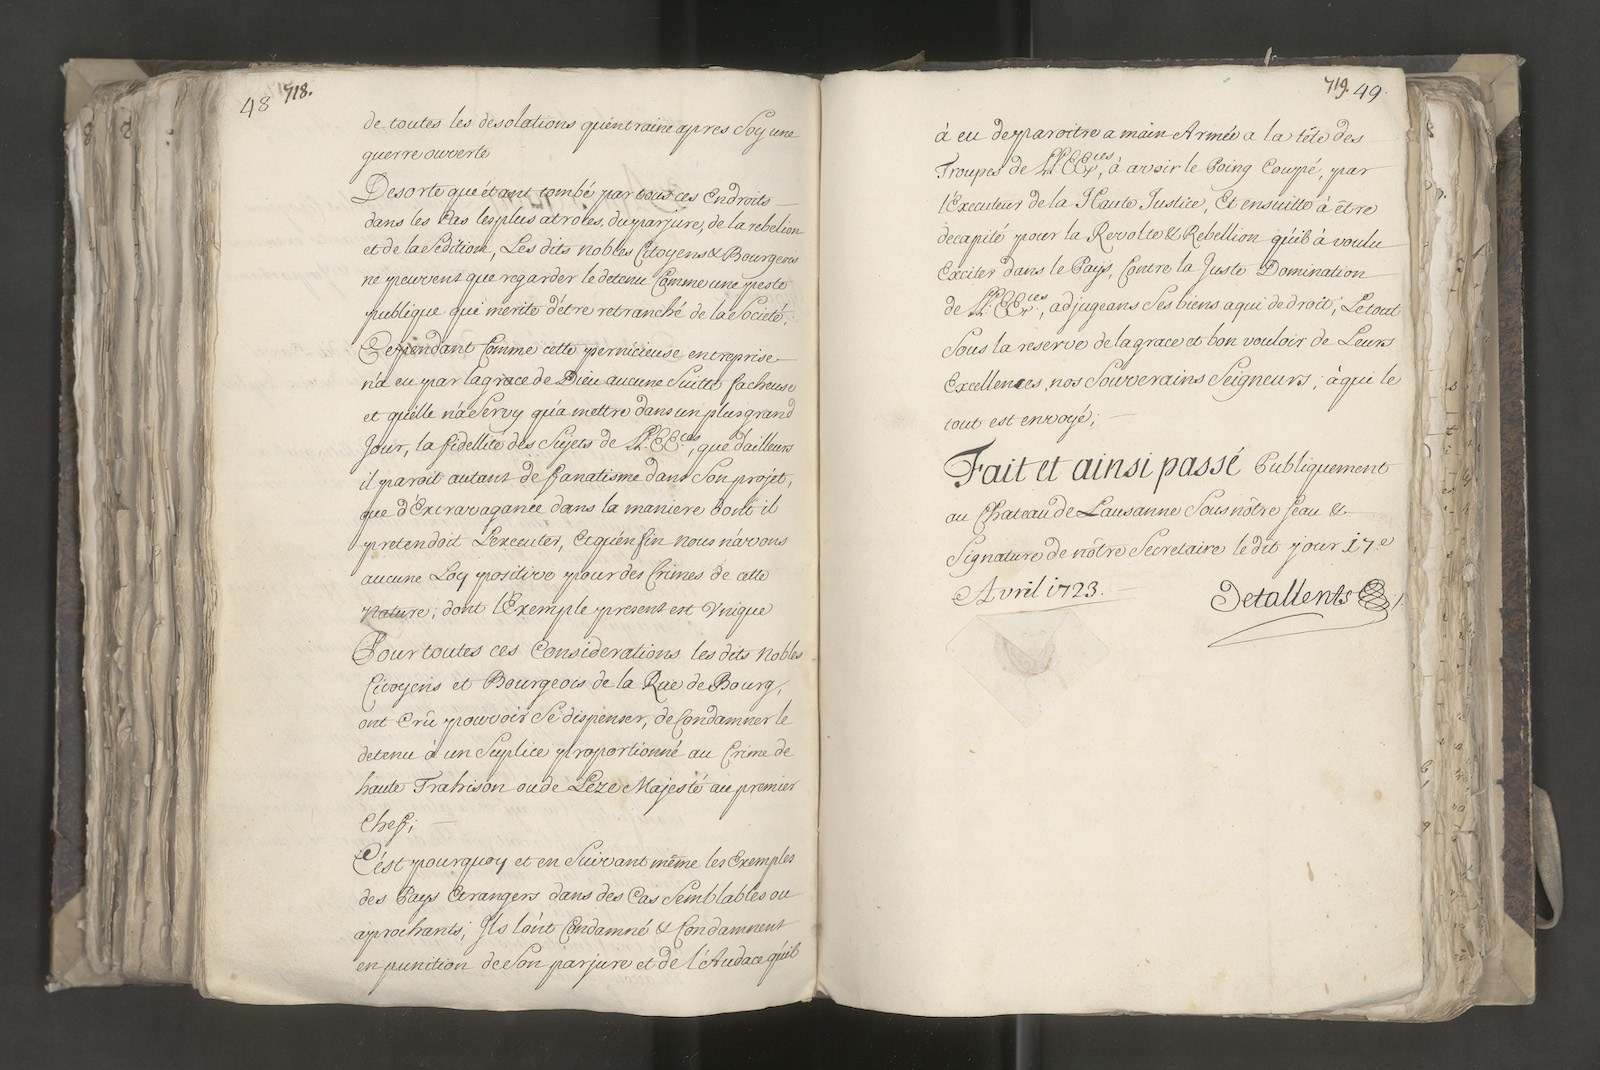 48 718.
de toutes les desolations qu'entraine apres Soy une
guerre ouverte
Desorte que étant tombé par tous ces Endroits
dans les Cas les plus atroces, du parjure, de la rebelion
et de la Sedition, Les dits nobles Citoyens & Bourgeois
ne peuvent que regarder le detenu Comme une peste
publique qui merite d'être retranché de la Societé;
Cependant Comme cette pernicieuse entreprise
n'a eu par la grace de Dieu aucune Suitte facheuse
et qu'elle n'a Servy qu'a mettre dans un plus grand
Jour, la fidellité des Sujets de LL. EE.ces, que d'ailleurs
il paroit autant de fanatisme dans Son projet,
que d'Extravagance dans la maniere dont il
pretendoit L'executer, Et qu'en fin nous n'avons
aucune Loy positive pour des Crimes de cette
Nature, dont l'Exemple present est Unique
Pour toutes ces Considerations les dits nobles
Citoyens et Bourgeois de la Rue de Bourg,
ont Crû pouvoir Se dispenser, de Condamner le
detenu à un Suplice proportionné au Crime de
haute Trahison ou de Leze Majesté au premier
Chef;
C'ést pourquoy et en Suivant même les Exemples
des Pays Etrangers dans des Cas Semblables ou
aprochants; Ils l'ont Condamné & Condamnent
en punition de Son parjure et de l'Audace qu'il
719. 49.
à eu de paroitre a main Armée a la tête des
Troupes de LL. EE.ces, à avoir le Poing Coupé, par
l'Executeur de la Haute Justice, Et ensuitte à être
decapité pour la Revolte & Rebellion qu'il à voulu
Exciter dans le Pays, Contre la Juste Domination
de LL. EE.ces, adjugeans Ses biens a qui de droit; Le tout
Sous la reserve de la grace et bon vouloir de Leurs
Excellences nos Souverains Seigneurs, à qui le
tout est envoyé;
Fait et ainsi passé Publiquement
au Chateau de Lausanne Sous nôtre Seau &
Signature de nôtre Secretaire le dit jour 17.e
Avril 1723.
Detallents